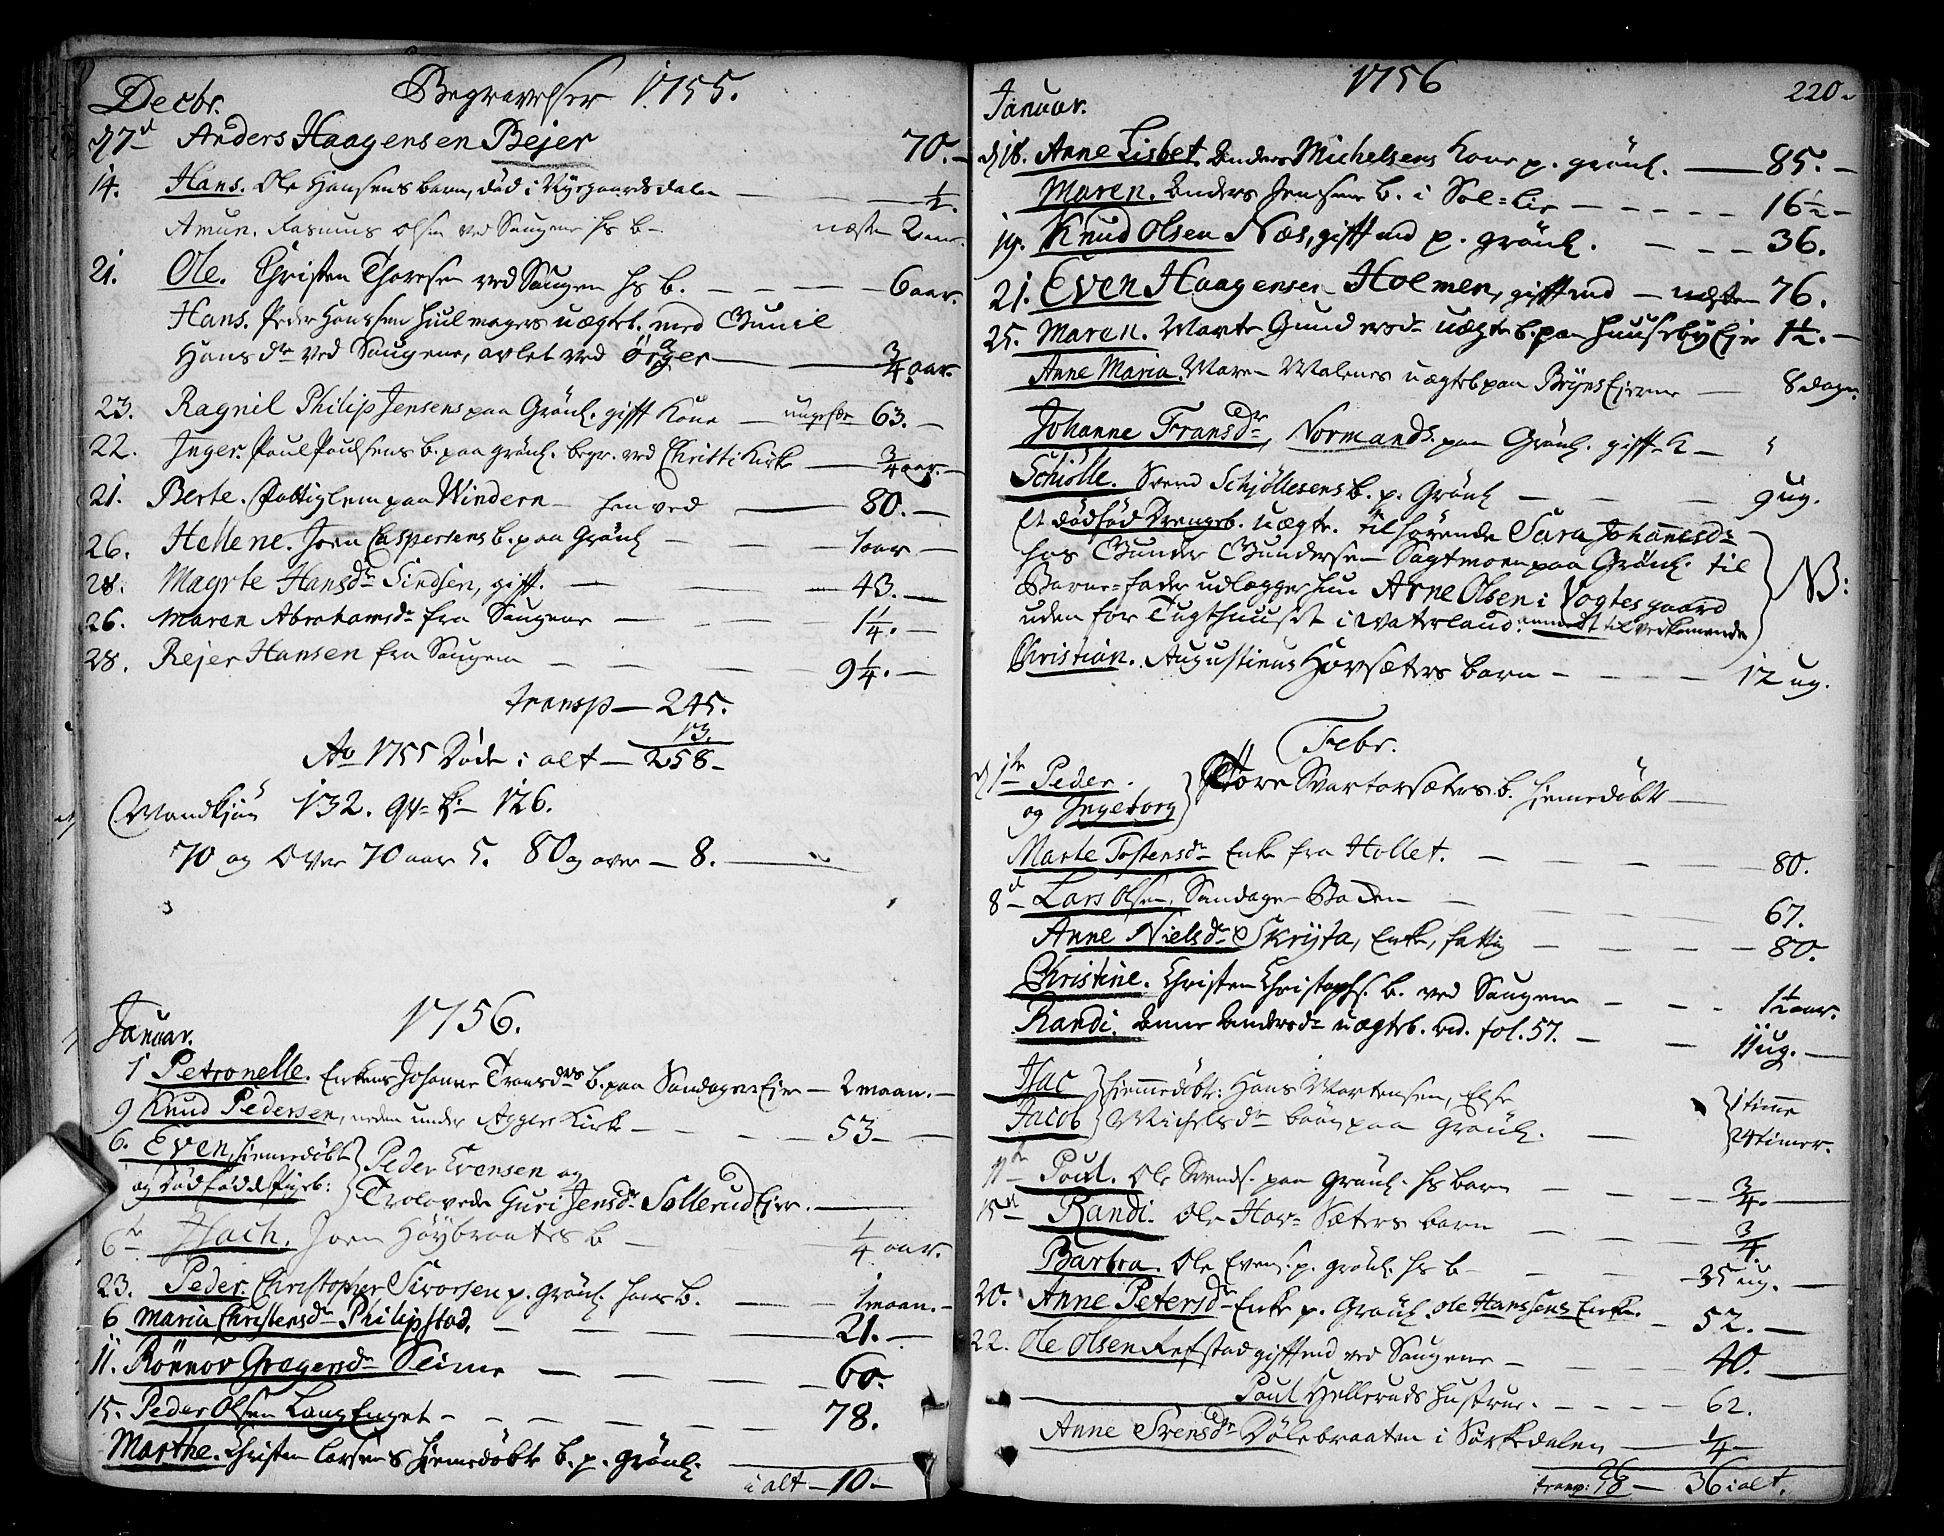 Decbr. Begravelser 1755.
d 7d Anders Haagensen Bejer 70.
14. Hans. Ole Hansens barn, død i Nysgaardsdalen — 1/2.
Amun. Rasmus Olsen ved Saugene hs b — næsten 2 aar.
21. Ole. Christen Thoresen ved Saugen hs b. — 6 aar.
Hans. Peder Hanssen Hiulmagers uægteb. med Gunil
Hansdr ved Saugene, avlet ved — 3/4 aar.
23. Ragnil Philip Jensens paa Grönl. gift Kone — ungefær 63.
22. Inger. Poul Poulsens b. paa grönl. begr. ved Christi Kirke — 3/4 aar.
21. Berte. Fattiglem paa Windern — henved — 80.
26. Hellene. Joen Caspersens b. paa Grönl — 1 aar
28. Magrte Hansdr Sindsen, gift. — 43.
26. Maren Abrahamsdr fra Saugene — 1 1/4.
28. Rejer Hansen fra Saugen — 9 1/4.
transp — 245.
13.
Ao 1755 Døde i alt — 258
Mandkjøn 132. qv. k. 126.
70 og over 70 aar 5. 80 og over — 8.
1756.
Januar.
1 Petronelle. Enkens Johanne Fransdrs b. paa Sandagers Eje — 2 maan.
9 Knud Pedersen, neden under Agger Kirke — 53
6. Even, hiemedøbt } Peder Evensen og
og dødfødd Pigeb: } Trolovede Guri Jensdr Sollerud Eje.
6te Isach. Joen Höybraatens b — 1/4 aar.
23. Peder. Christopher Sivorsen p. Grönl. hans b. — 1 maan.
6 Maria Christensdr Philipstad. — 21.
11. Rönnov Gregersdr Seime — 60.
15. Peder Olsen Lang Enget — 78.
Marthe. Christen Larsens hiemedøbte b. p. Grönl.
i alt — 10
1756 220.
Januar.
d 18. Anne Lisbet. Anders Michelsens Kone p. grönl. — 85.
Maren. Anders Jensens b. i Sol=Lie — 16 1/2
19. Knud Olsen Næs, gift md p. grönl. — 36.
21. Even Haagensen Holmen, gift md — næsten 76.
25. Maren. Marte Gundersdr uægte b. paa Huuseby Eje 1 1/2.
Anne Maria. Maren Malenes uægteb paa Bryns Eierne — 8 dage.
Johanne Fransdr, Normands paa Grönl. gift K —
Schiölle. Svend Schjöllesens b. p. Grönl — 9 ug.
Et dødfød Drengeb. uægte. tilhørende Sara Johannesdr
hos Gunder Gundersen Sagtmoen paa Grönl. til
Barne=fader udlægger hun Arne Olsen i Vogtes gaard
uden for Tugthuuset i Vaterland. anmeldt til vedkommende } NB:
Christian. Augustinus Hovsæters barn — 12 ug.
Febr.
d 1te Peder.
og Ingeborg } Tore Svartorsæters b. hiemedøbte
Marte Tostensdr Enke fra Hollet. — 80.
8d Lars Olsen, Sandager Baden — 67.
Anne Nielsdr Skrijta, Enke, fattig — 80.
Christine. Christen Christophs. b. ved Saugene — 1 1/2 aar.
Randi. Anne Andersdr uægteb. vid. fol. 57. — 11 ug.
Isac } hiemmedøbt: Hans Mortensen, Else } 1 time
Jacob } Michelsdr börn paa Grönl. — } 24 timer.
11te Poul. Ole Svends. paa Grönl. hs barn — 3/4.
15de Randi. Ole Hov=Sæters barn — 3/4.
Barbra. Ole Evens. p. grönl. hs b — 35 ug.
20. Anne Petersdr Enke p. Grönl. Ole Hanssens Enke. — 52.
22. Ole Olsen Refstad gift md ved Saugene — 40.
Poul Helleruds Hustrue. — 62.
Anne Svensdr Dölebraaten i Sörkedalen — 1/4
transp: 26
10 — 36 i alt.